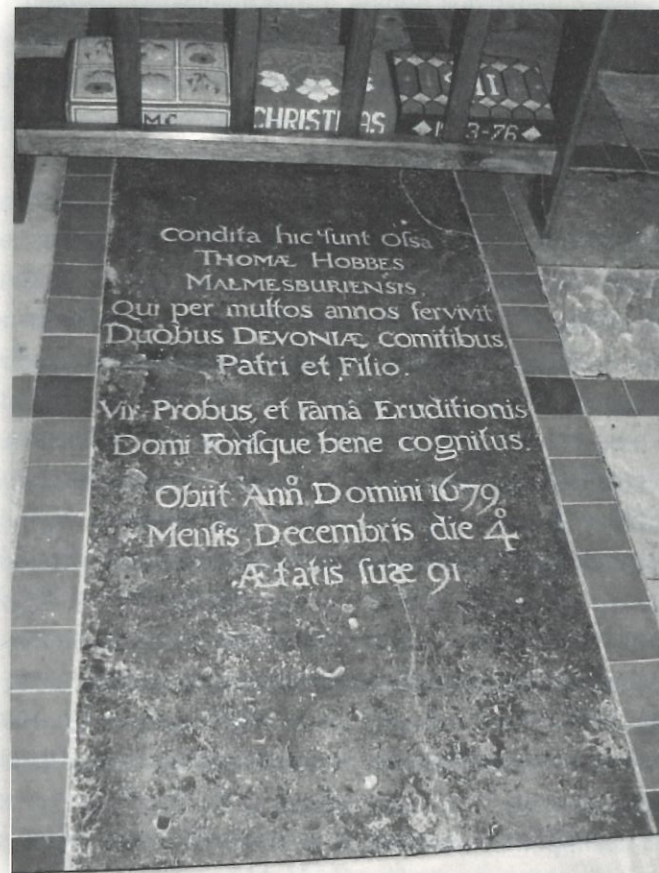 M.C.
CHRISTMAS
Condita hic ſunt Oſsa
THOMÆ HOBBES
MALMESBURIENSIS,
Qui per multos annos ſervivit
Duobus DEVONIÆ comitibus,
Patri et Filio.
Vir Probus, et Famâ Eruditionis
Domi Foriſque bene cognitus.
Obiit Anno Domini 1679,
Menſis Decembris die 4º
Ætatis ſuæ 91